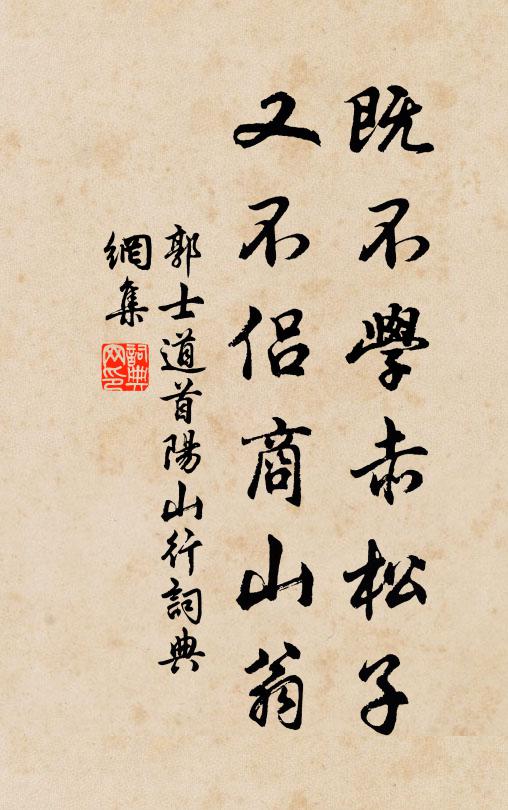 既不學赤松子
又不侶商山翁
郭士道首陽山行詞典
網集
詞典
网印